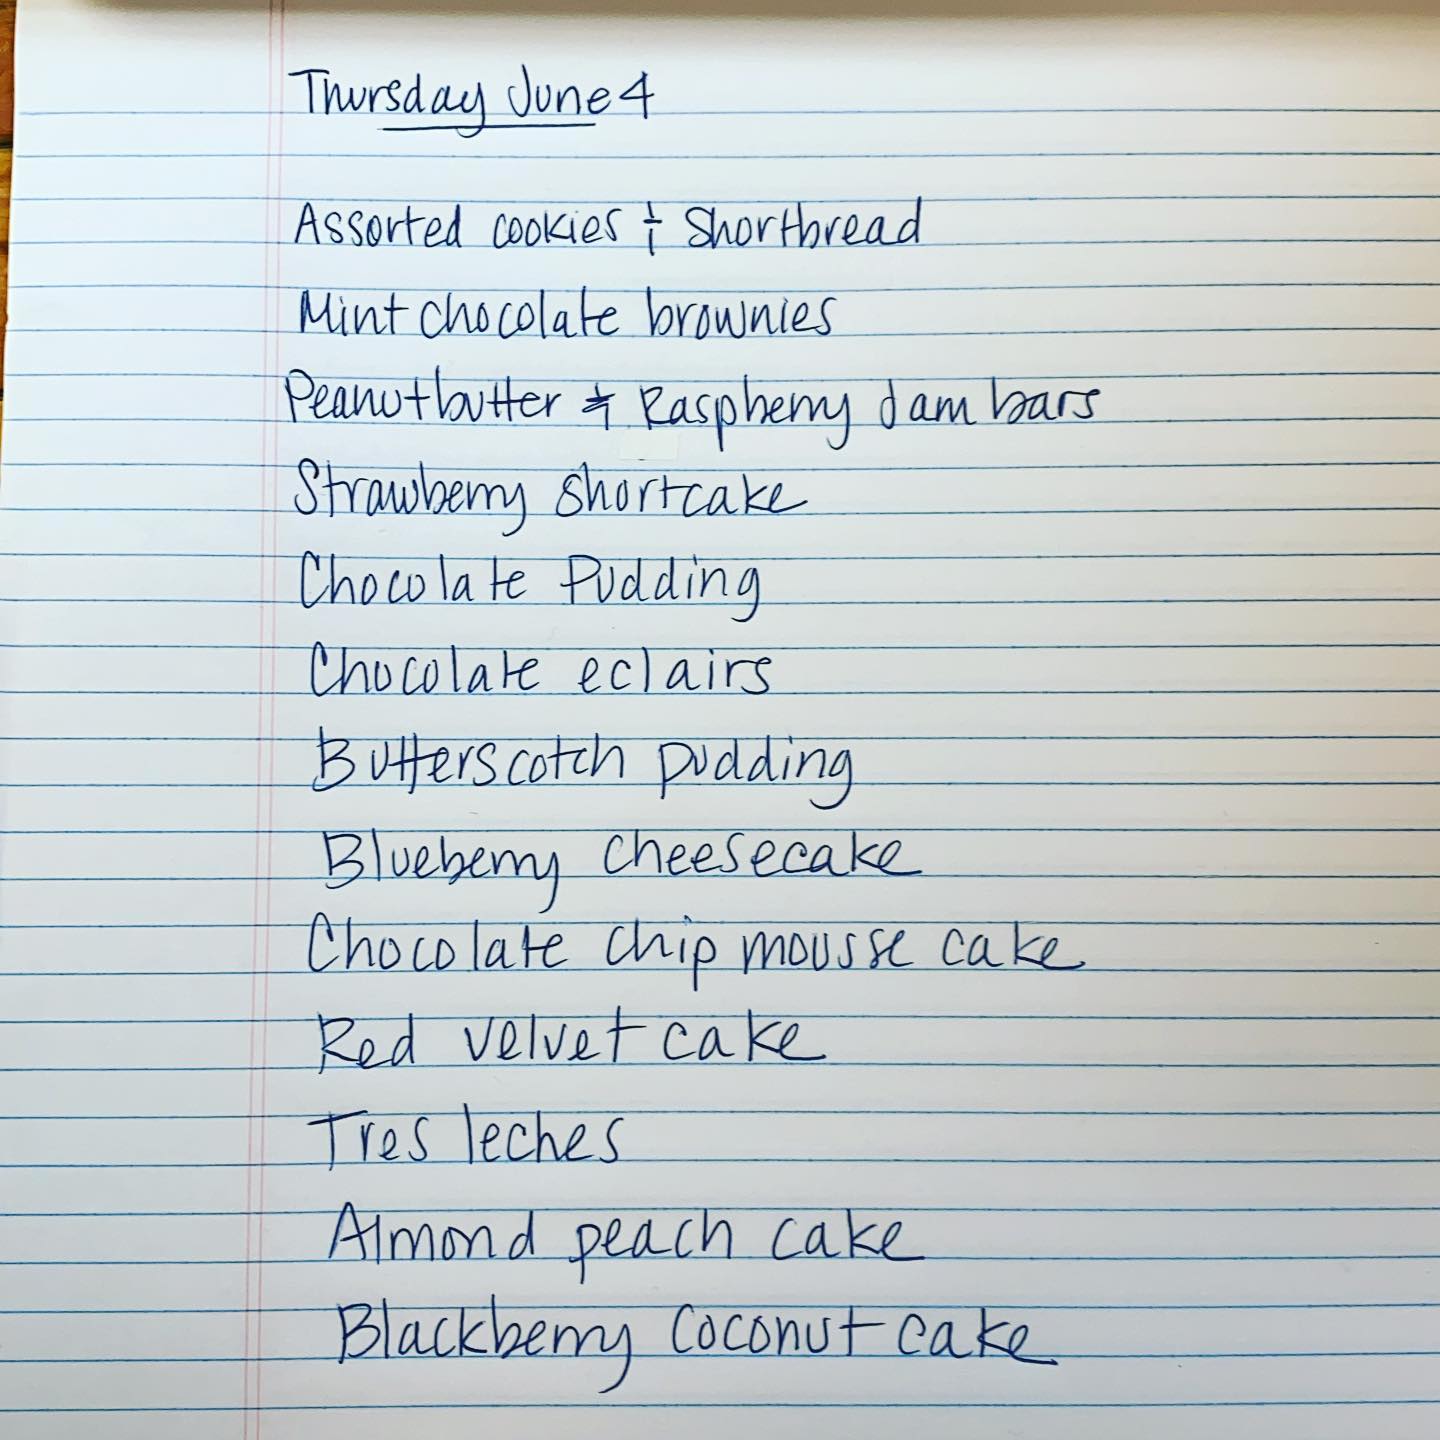 Thursday June 4
Assorted cookies & Shortbread
Mint chocolate brownies
Peanutbutter & Raspberry Jam bars
Strawberry shortcake
Chocolate Pudding
Chocolate eclairs
Butterscotch pudding
Blueberry cheesecake
Chocolate chip mousse cake
Red velvet cake
Tres leches
Almond peach cake
Blackberry Coconut cake